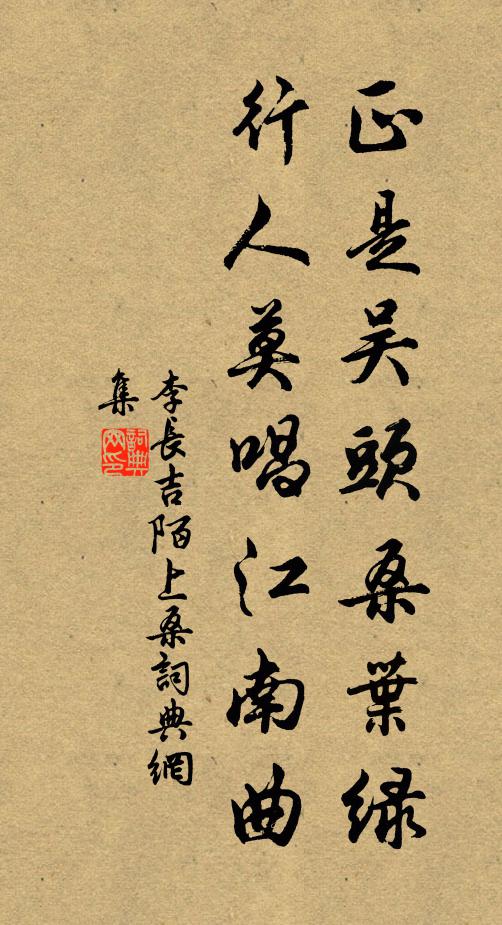 正是吴頭桑葉緑
行人莫唱江南曲
李長吉陌上桑詞典網
集
詞典
网印